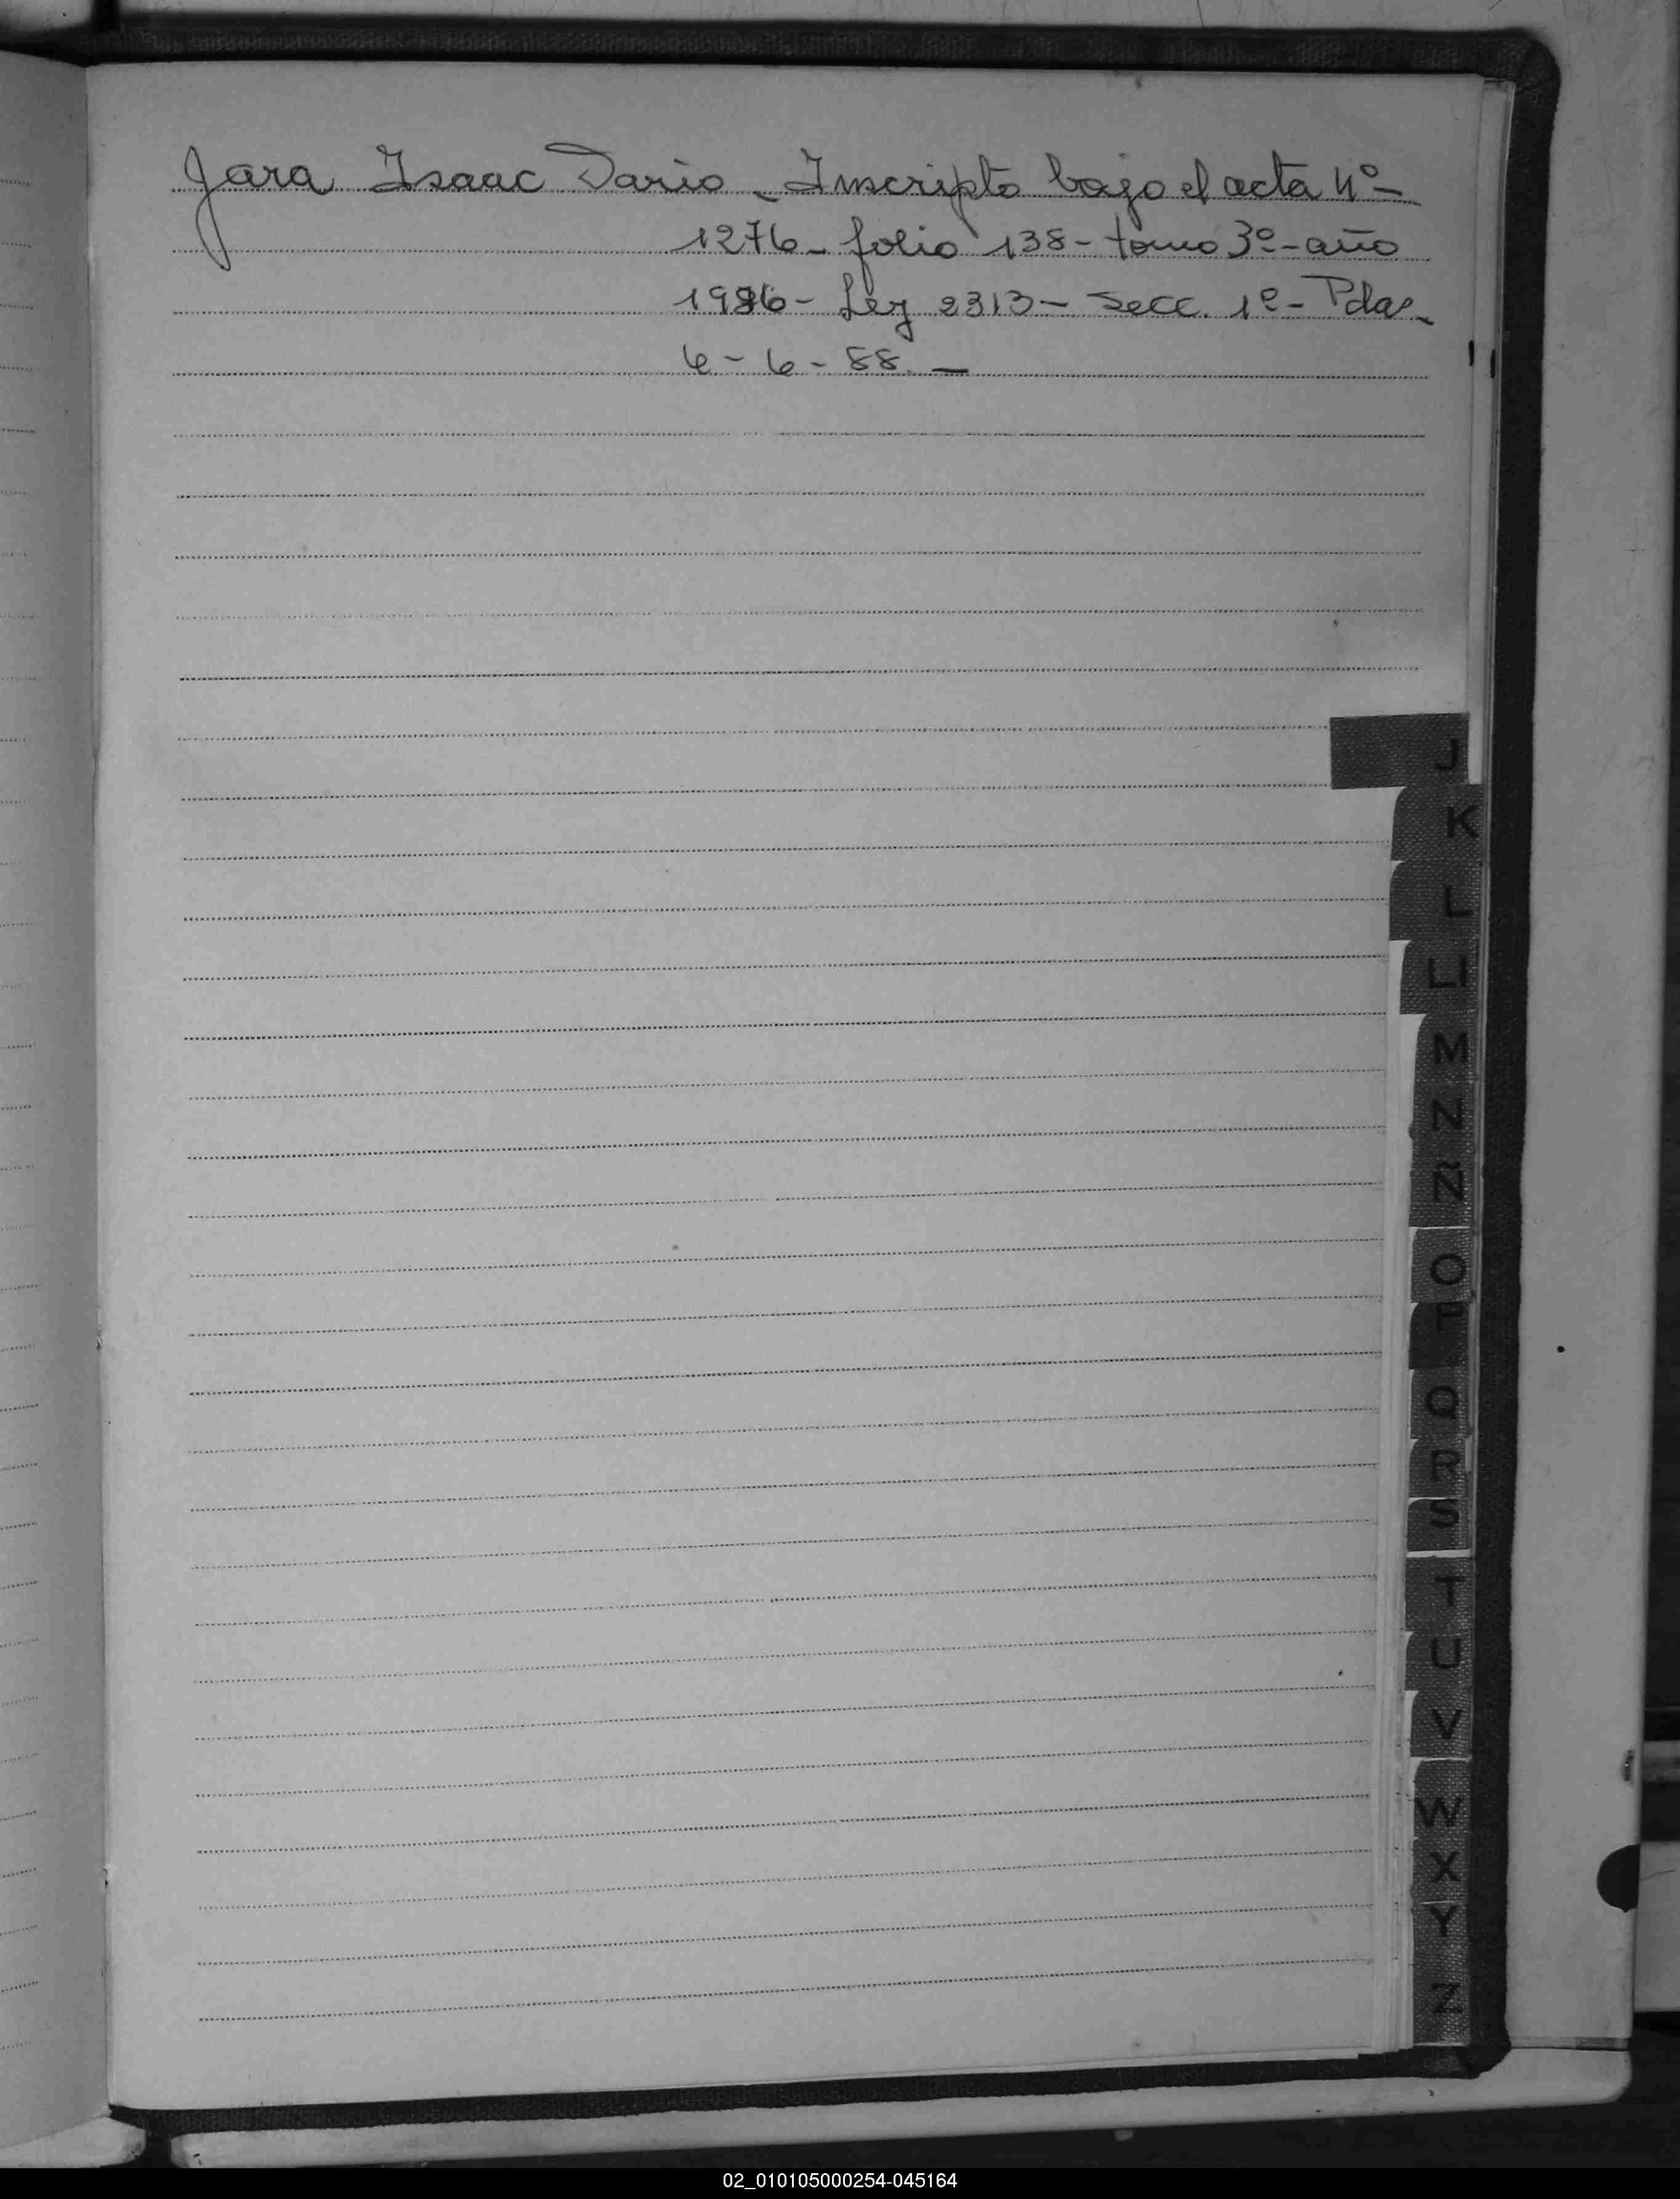 Jara Isaac Dario - Inscripto bajo el acta Nº-
1276- folio 138- tomo 3º- año
1986- Ley 2313- Secc. 1º- Pdas-
6-6-88.-
J
K
L
Ll
M
N
Ñ
O
P
Q
R
S
T
U
V
W
X
Y
Z
02_010105000254-045164